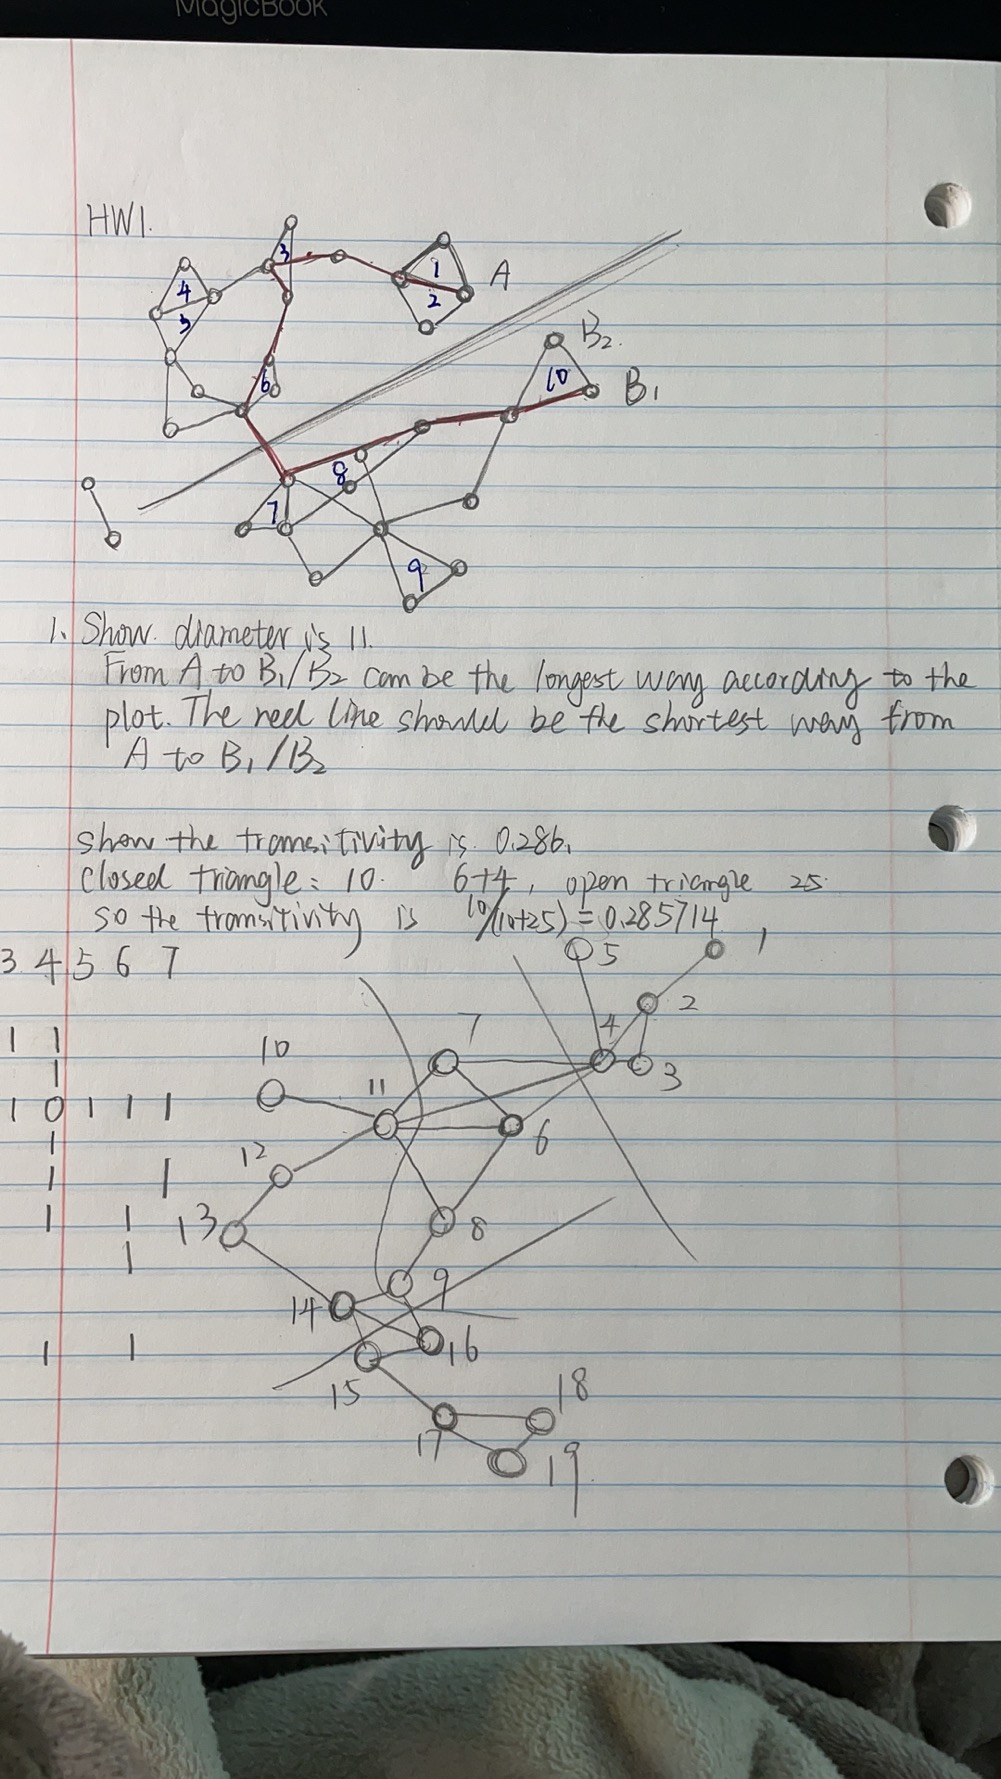 MagicBook
HW1.
3
4
1
A
2
3
6
B2.
10
B1
8
7
9
1. Show diameter is 11.
From A to B1/B2 can be the longest way according to the
plot. The red line should be the shortest way from
A to B1/B2
show the transitivity is 0.286.
closed triangle: 10. 6+4, open triangle 25.
so the transitivity is 10/(10+25) = 0.285714
3 4 5 6 7
5
1
2
7
4
10
3
1 1
11
1
1 0 1 1 1
6
1
12
1 1
1 1
13
8
1
9
14
1 1
16
15
18
17
19